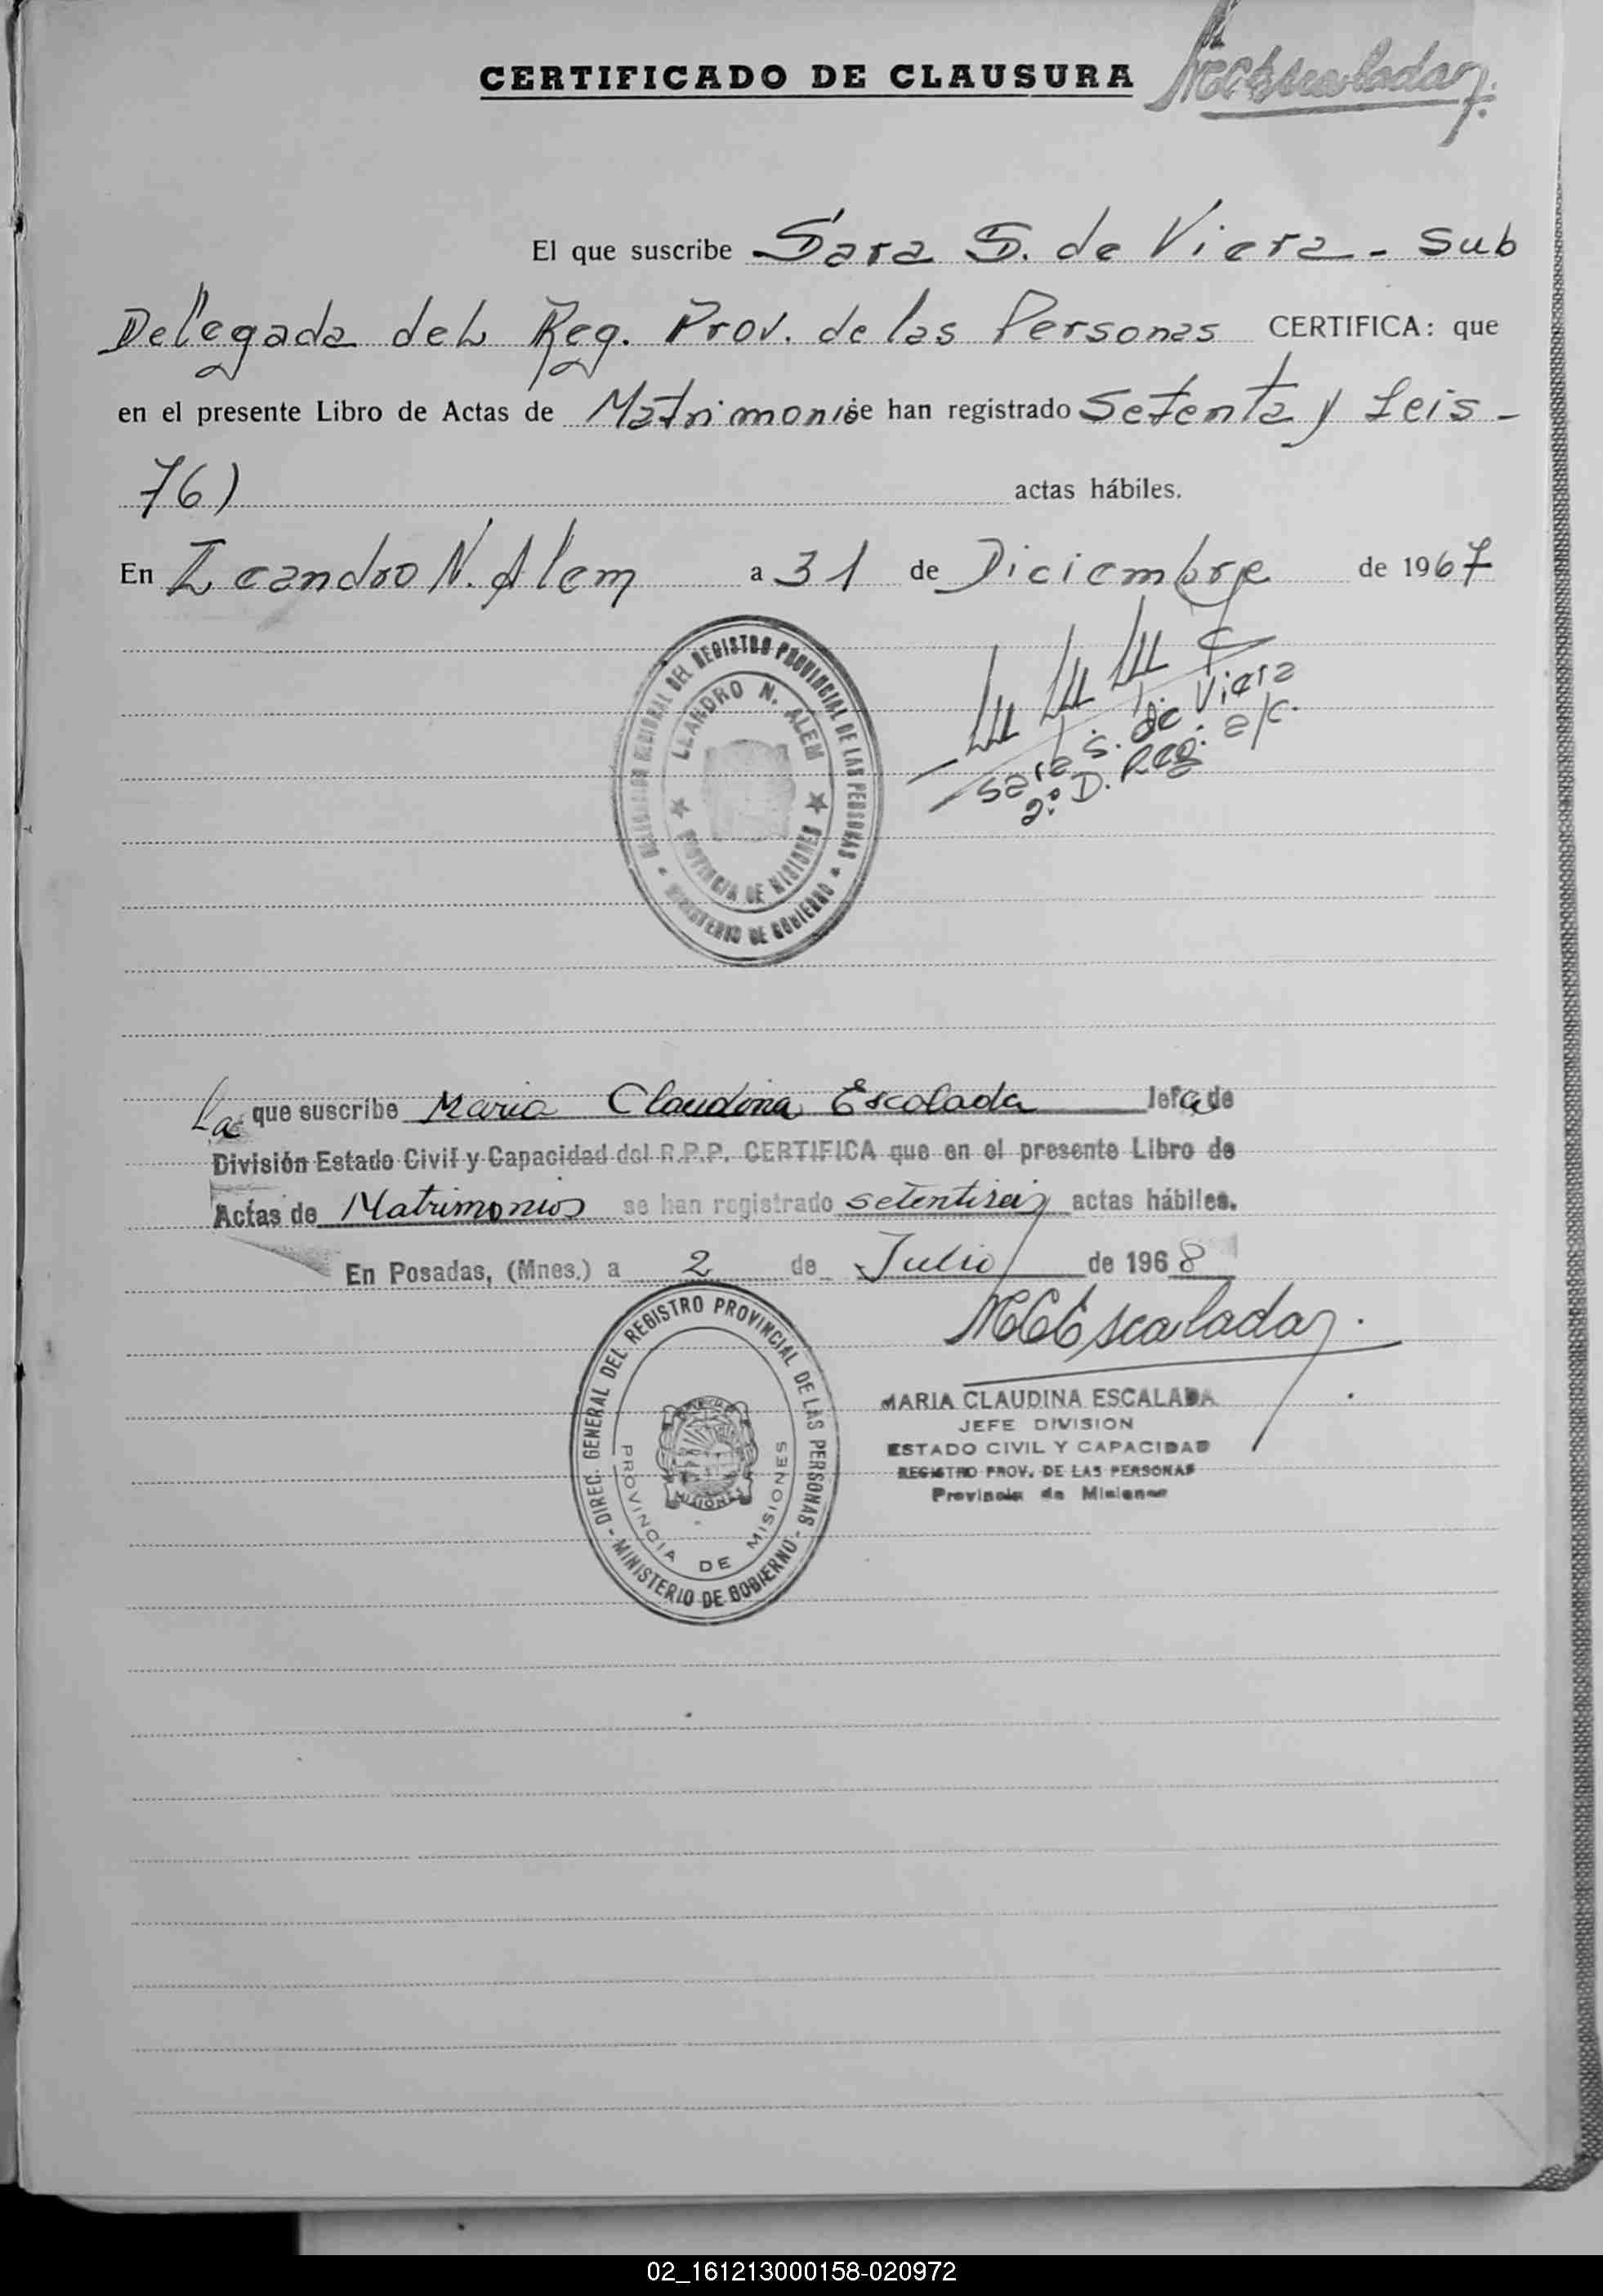 CERTIFICADO DE CLAUSURA
MCEscalada
El que suscribe Sara S. de Viera - Sub
Delegada del Reg. Prov. de las Personas CERTIFICA: que
en el presente Libro de Actas de Matrimonio se han registrado Setenta y Seis -
76) actas hábiles.
En Leandro N. Alem a 31 de Diciembre de 1967
DEL REGISTRO PROVINCIAL DE LAS PERSONAS
LEANDRO N. ALEM
PROVINCIA DE MISIONES
MINISTERIO DE GOBIERNO
Sara S. de Viera
2º D. Reg. a/c.
La que suscribe Maria Claudina Escalada Jefa de
División Estado Civil y Capacidad del R.P.P. CERTIFICA que en el presente Libro de
Actas de Matrimonios se han registrado setentiseis actas hábiles.
En Posadas, (Mnes.) a 2 de Julio de 1968
MCEscalada
DIREC. GENERAL DEL REGISTRO PROVINCIAL DE LAS PERSONAS
MISIONES
PROVINCIA DE MISIONES
- MINISTERIO DE GOBIERNO -
MARIA CLAUDINA ESCALADA
JEFE DIVISION
ESTADO CIVIL Y CAPACIDAD
REGISTRO PROV. DE LAS PERSONAS
Provincia de Misiones
02_161213000158-020972